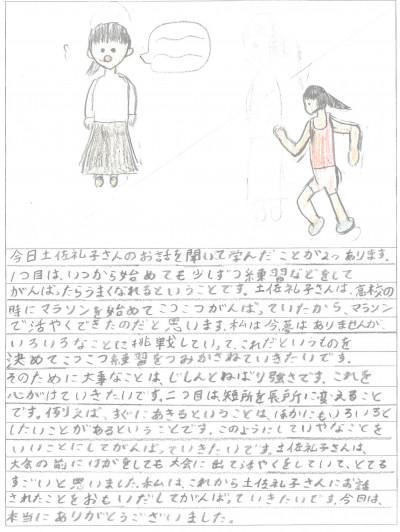 今日土佐礼子さんのお話を聞いて学んだことが2つあります。
1つ目は、いつから始めても少しずつ練習などをして
がんばったらうまくなれるということです。土佐礼子さんは、高校の
時にマラソンを始めてこつこつがんばっていたから、マラソン
で活やくできたのだと思います。私は今夢はありませんが、
いろいろなことに挑戦していって、これだというものを
決めてこつこつ練習をつみかさねていきたいです。
そのために大事なことは、じしんとねばり強さです。これを
心がけていきたいです。二つ目は短所を長所に変えること
です。例えば、すぐにあきるということは、ほかにもいろいろと
したいことがあるということです。このようにしていやなことを
いいことにしてがんばっていきたいです。土佐礼子さんは、
大会の前にけがをしても大会に出て活やくをしていて、とても
すごいと思いました。私は、これから土佐礼子さんにお話
されたことをおもいだしてがんばっていきたいです。今日は、
本当にありがとうございました。